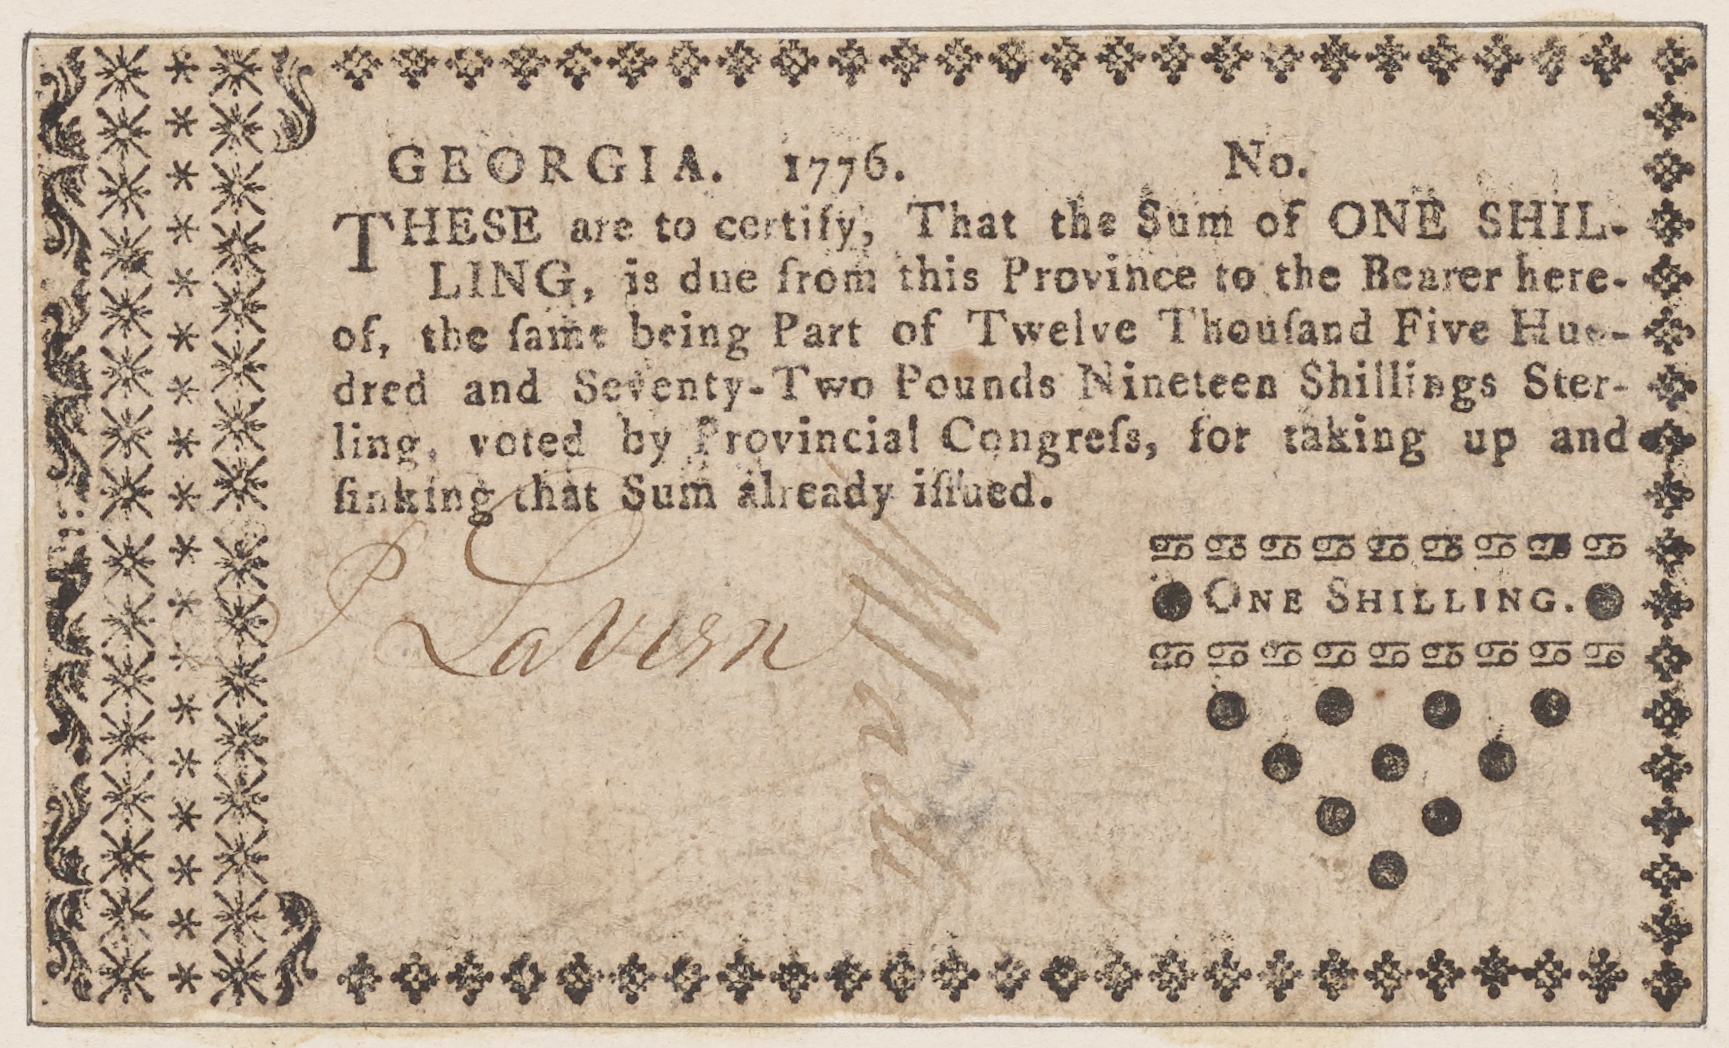 GEORGIA. 1776. No.
THESE are to certify, That the Sum of ONE SHIL-
LING, is due from this Province to the Bearer here-
of, the ſame being Part of Twelve Thouſand Five Hun-
dred and Seventy-Two Pounds Nineteen Shillings Ster-
ling, voted by Provincial Congreſs, for taking up and
ſinking that Sum already iſſued.
ONE SHILLING.
P Lavien